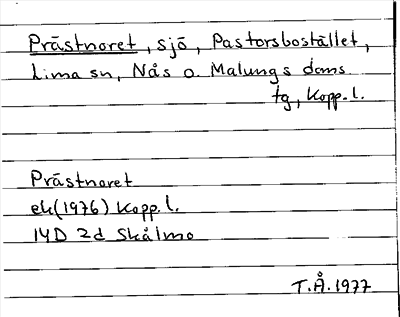 Prästnoret, sjö, Pastorsbostället,
Lima sn, Nås o. Malungs doms
tg, Kopp. l.
Prästnoret
ek(1976) Kopp. l.
14D 2d Skålmo
T.Å. 1977